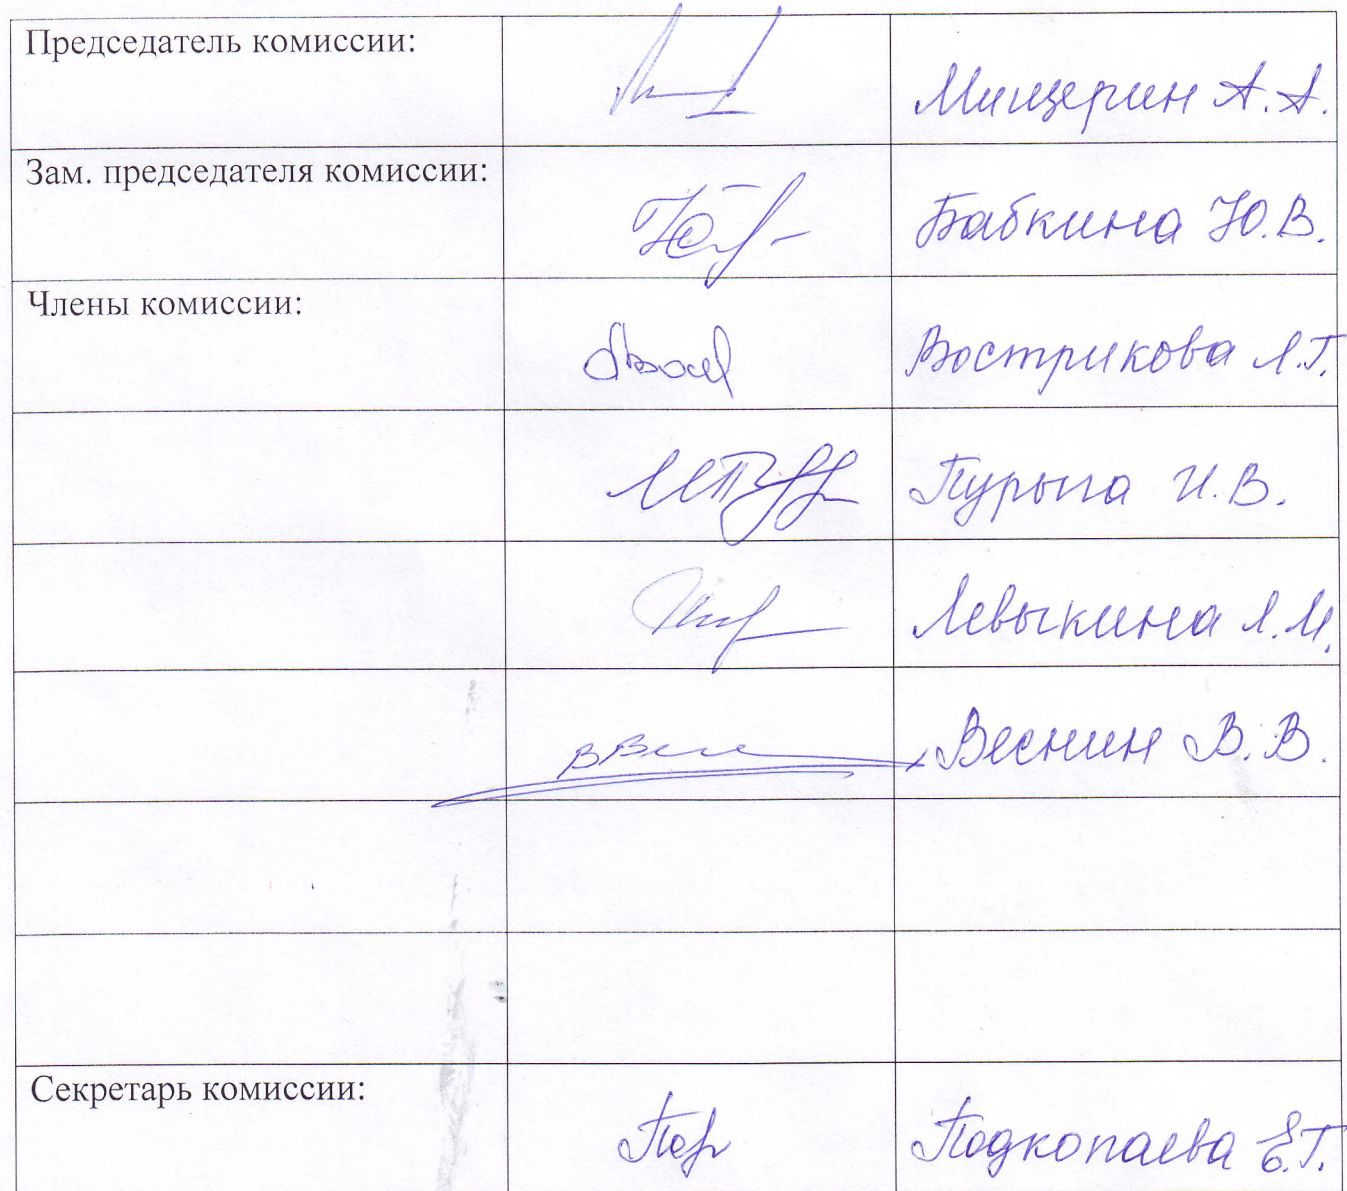 Председатель комиссии: Мищерин А.А.
Зам. председателя комиссии: Бабкина Ю.В.
Члены комиссии: Вострикова Л.Г.
Пурыга И.В.
Левыкина Л.М.
Веснин В.В.
Секретарь комиссии: Подкопаева Е.Г.